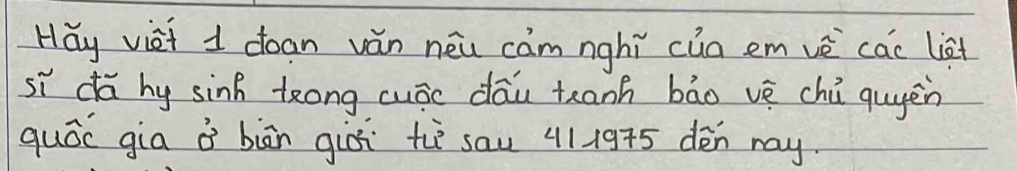 Hãy viết 1 đoạn văn nêu cảm nghĩ của em về các liệt
sĩ đã hy sinh trong cuộc đấu tranh bảo vệ chủ quyền
quốc gia ở biên giới từ sau 4/1975 đến nay.